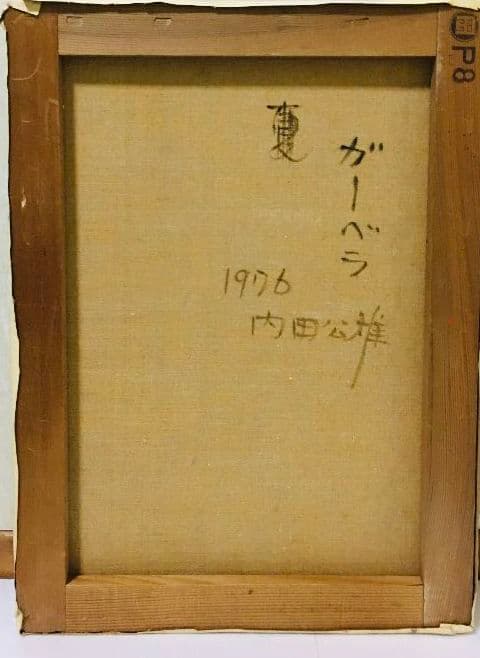 ガーベラ
夏
1976
内田公雄
P8